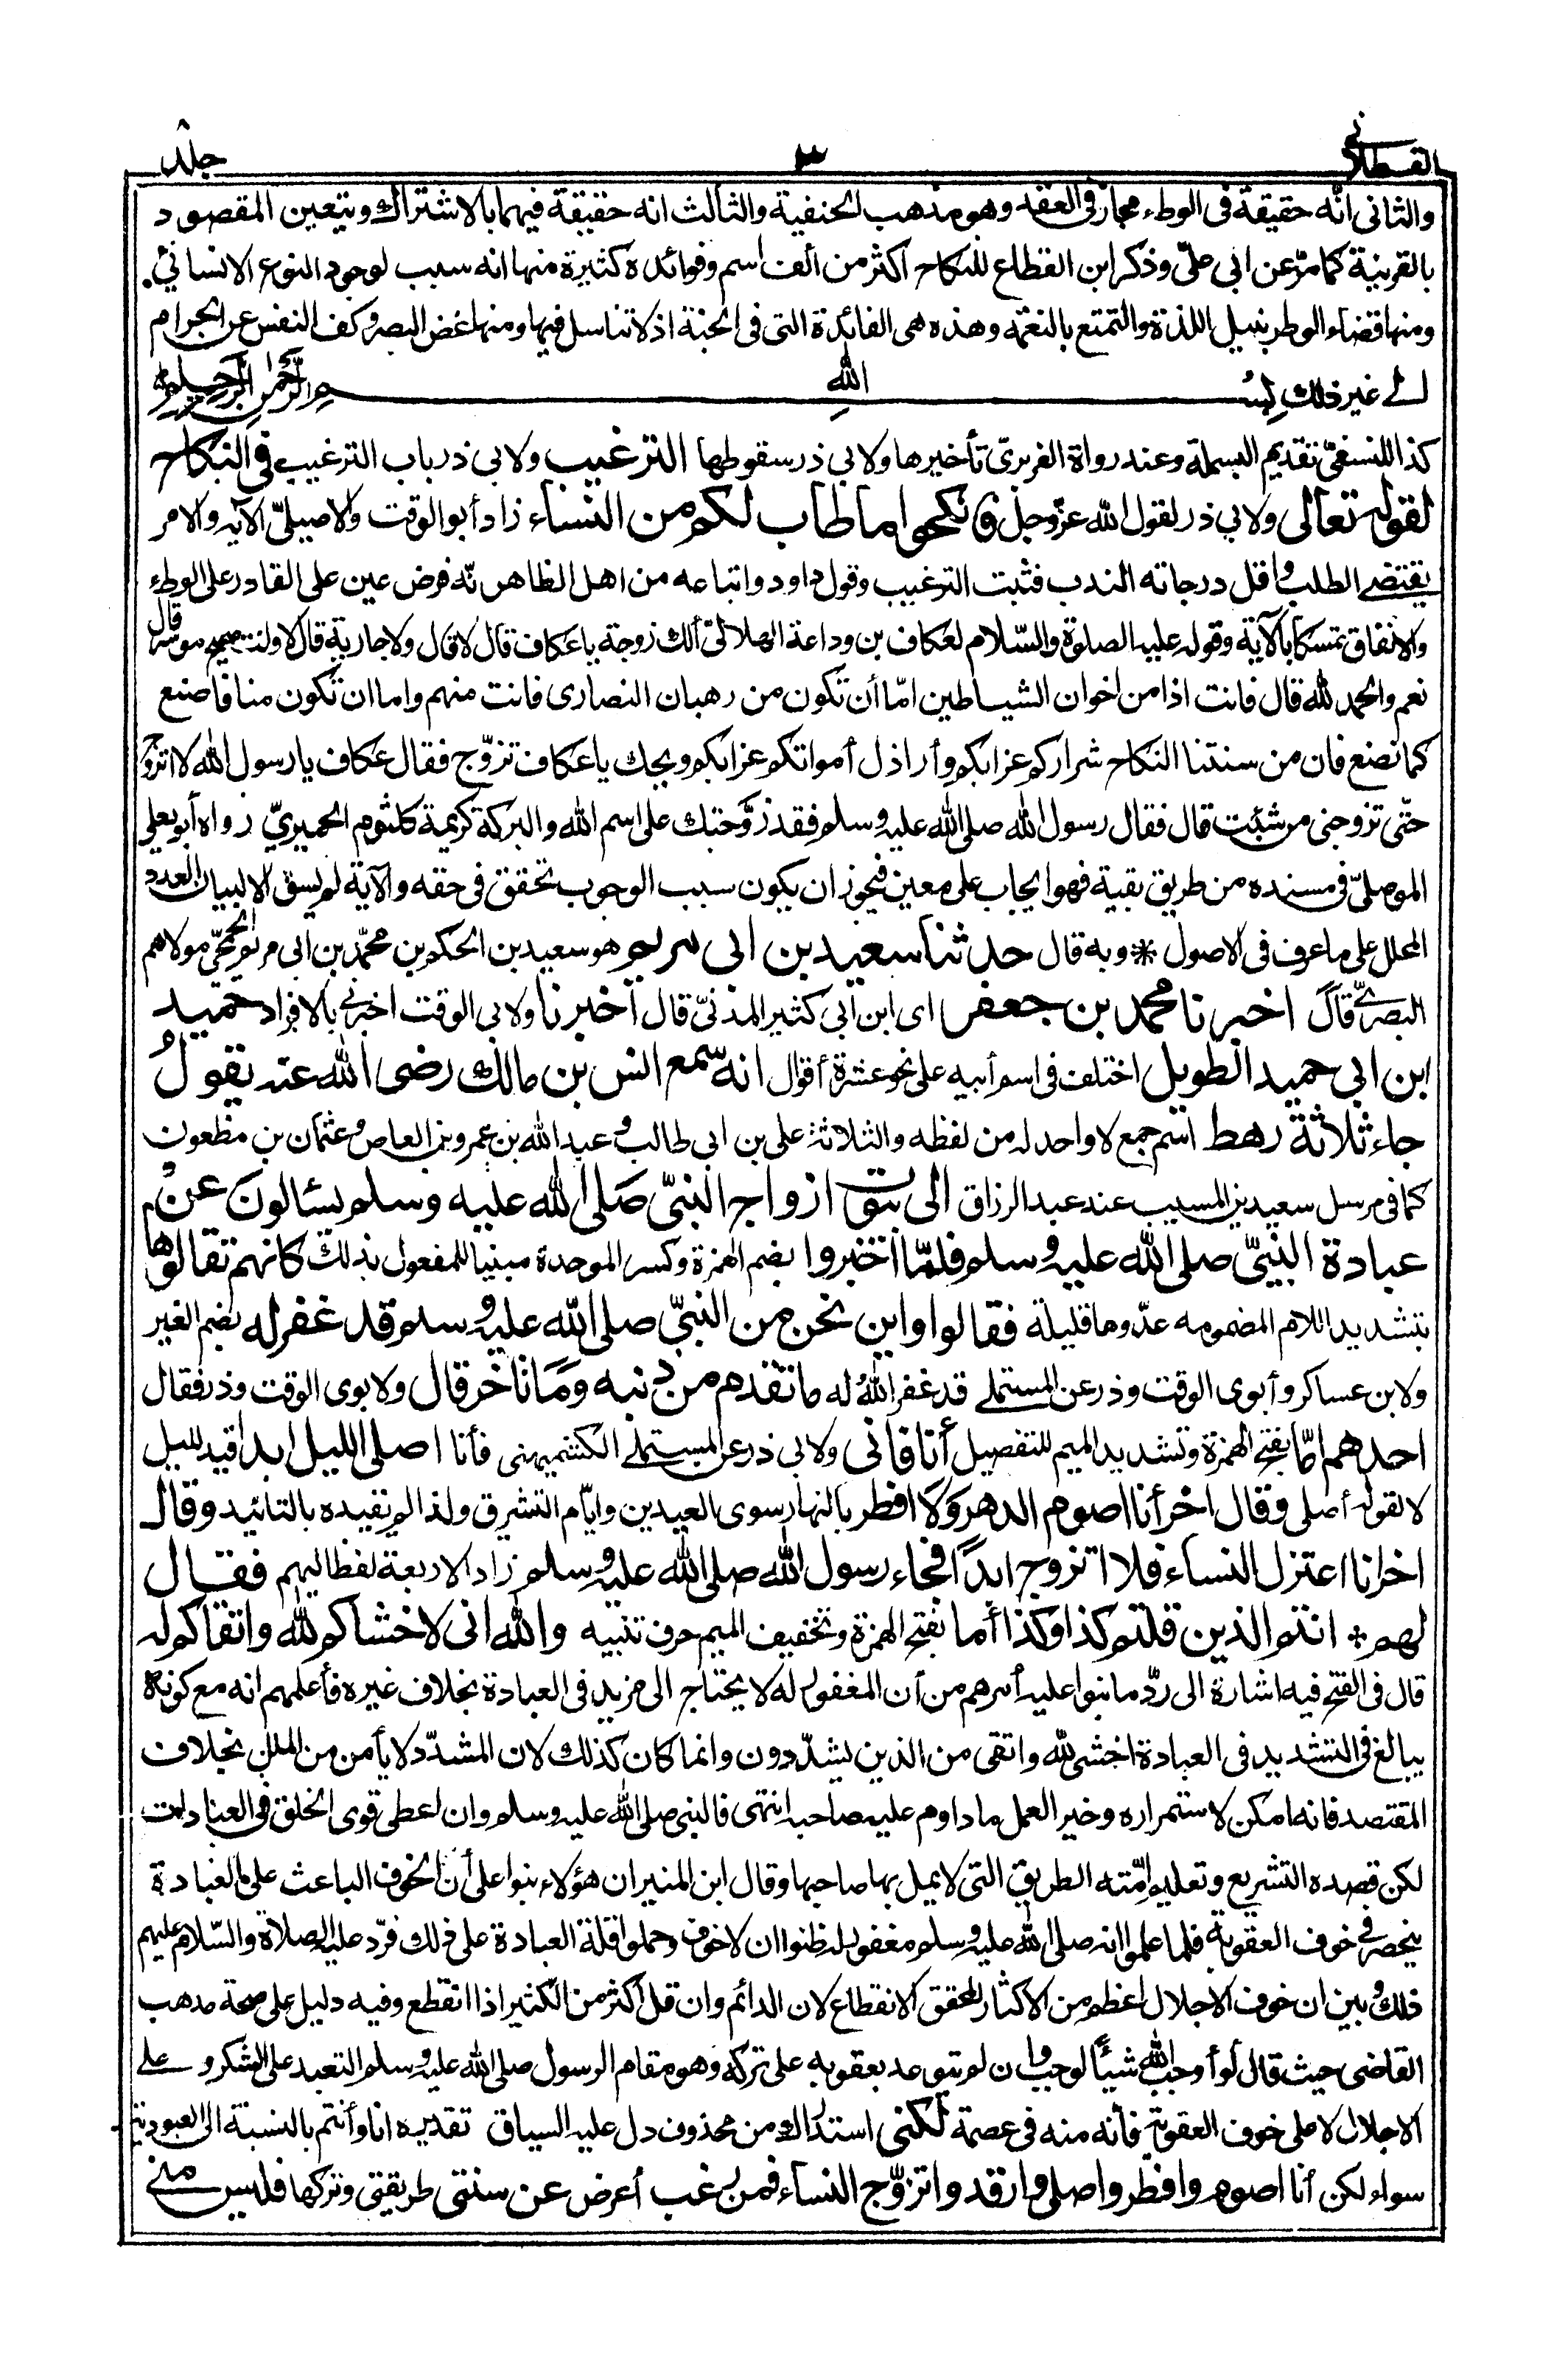 القسطلانى ٣ جلد ٨
والثانى انه حقيقة فى الوطء مجاز فى العقد وهو مذهب الحنفية والثالث انه حقيقة فيهما بالاشتراك ويتعين المقصود
بالقرينة كما مرّ عن ابى علىّ وذكر ابن القطاع للنكاح اكثر من ألف اسم وفوائده كثيرة منها انه سبب لوجود النوع الانسانىّ
ومنها قضاء الوطر بنيل اللذة والتمتع بالنعمة وهذه هى الفائدة التى فى الجنة اذ لا تناسل فيها ومنها غض البصر وكف النفس عن الحرام
الى غير ذلك بسم الله الرحمن الرحيم
كذا للنسفىّ تقديم البسملة وعند رواة الفربرىّ تأخيرها ولابى ذر سقوطها الترغيب ولابى ذر باب الترغيب فى النكاح
لقوله تعالى ولابى ذر لقول الله عزّ وجل فانكحوا ما طاب لكم من النساء زاد أبو الوقت والاصيلىّ الآية والامر
يقتضى الطلب واقل درجاته الندب فثبت الترغيب وقول داود واتباعه من اهل الظاهر انّه فرض عين على القادر على الوطء
والانفاق تمسكا بالآية وقوله عليه الصلوة والسّلام لعكاف بن وداعة الهلالىّ ألك زوجة يا عكاف قال لا قال ولا جارية قال لا قال وانت صحيح موسر قال
نعم والحمد لله قال فانت اذا من اخوان الشياطين امّا أن تكون من رهبان النصارى فانت منهم واما ان تكون منا فاصنع
كما نصنع فان من سنتنا النكاح شراركم عزابكم وأراذل أمواتكم عزابكم ويحك يا عكاف تزوّج فقال عكاف يا رسول الله لا اتزوّج
حتّى تزوجنى من شئت قال فقال رسول الله صلى الله عليه وسلم فقد زوّجتك على اسم الله والبركة كريمة كلثوم الحميرىّ رواه أبو يعلى
الموصلىّ فى مسنده من طريق بقية فهو ايجاب على معين فيجوز ان يكون سبب الوجوب تحقق فى حقه والآية لم يسق الا لبيان العدد
المحلل على ما عرف فى الاصول * وبه قال حدثنا سعيد بن ابى مريم هو سعيد بن الحكم بن محمّد بن ابى مريم الجمحىّ مولاهم
البصرىّ قال اخبرنا محمد بن جعفر اى ابن أبى كثير المدنىّ قال أخبرنا ولابى الوقت اخبرنى بالافراد حميد
ابن ابى حميد الطويل اختلف فى اسم أبيه على نحو عشرة أقوال انه سمع انس بن مالك رضى الله عنه يقول
جاء ثلاثة رهط اسم جمع لا واحد له من لفظه والثلاثة على بن ابى طالب وعبد الله بن عمرو بن العاص وعثمان بن مظعون
كما فى مرسل سعيد بن المسيب عند عبد الرزاق الى بيوت ازواج النبىّ صلى الله عليه وسلم يسئالون عن
عبادة النبىّ صلى الله عليه وسلم فلمّا أخبروا بضم الهمزة وكسر الموحدة مبنيا للمفعول بذلك كانهم تقالوها
بتشديد اللام المضمومه عدّوها قليلة فقالوا واين نحن من النبىّ صلى الله عليه وسلم قد غفر له بضم الغين
ولابن عساكر وأبوى الوقت وذر عن المستملى قد غفر الله له ما تقدم من ذنبه وما تأخر قال ولابوى الوقت وذر فقال
احدهم امّا بفتح الهمزة وتشديد الميم للتفصيل أنا فانى ولابى ذر عن المستملى الكشميهنى فأنا اصلى الليل ابدا قيد لليل
لا لقوله أصلى وقال اخر أنا اصوم الدهر ولا افطر بالنهار سوى العيدين وايّام التشريق ولذا لم يقيده بالتائيد وقال
اخر انا اعتزل النساء فلا اتزوج ابدًا فجاء رسول الله صلى الله عليه وسلم زاد الاربعة لفظ اليهم فقال
لهم * انتم الذين قلتم كذا وكذا أما بفتح الهمزة وتخفيف الميم حرف تنبيه والله انى لاخشاكم لله واتقاكم له
قال فى الفتح فيه اشارة الى ردّ ما بنوا عليه أمرهم من أن المغفور له لا يحتاج الى مزيد فى العبادة بخلاف غيره فأعلمهم انه مع كونه
يبالغ فى التشديد فى العبادة اخشى لله واتقى من الذين يشدّدون وانما كان كذلك لان المشدّد لا يأمن من الملل بخلاف
المقتصد فانه امكن لاستمراره وخير العمل ما داوم عليه صاحبه انتهى فالنبى صلى الله عليه وسلم وان اعطى قوى الخلق فى العبادات
لكن قصده التشريع وتعليم امّته الطريق التى لا يمل بها صاحبها وقال ابن المنير ان هؤلاء بنوا على أن الخوف الباعث على العبادة
ينحصر فى خوف العقوبة فلما علموا انه صلى الله عليه وسلم مغفور له ظنوا ان لا خوف وحملوا قلة العبادة على ذلك فردّ عليه الصلاة والسّلام عليهم
ذلك وبين ان خوف الاجلال اعظم من الاكثار المحقق الانقطاع لان الدائم وان قل أكثر من الكثير اذا انقطع وفيه دليل على صحة مذهب
القاضى حيث قال لو أوجب الله شيئًا لوجب وان لم يتوعد بعقوبه على تركه وهو مقام الرسول صلى الله عليه وسلم التعبد على الشكر و على
الاجلال لا على خوف العقوبة فانه منه فى عصمة لكنى استدراك من محذوف دل عليه السياق تقديره انا وأنتم بالنسبة الى العبودية
سواء لكن أنا اصوم وافطر واصلى وارقد واتزوّج النساء فمن رغب أعرض عن سنتى طريقتى وتركها فليس منى